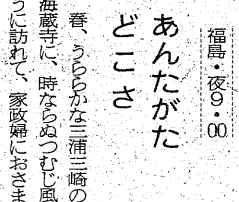 福島・夜9・00
あんたがた
どこさ
春、うららかな三浦三崎の
海蔵寺に、時ならぬつむじ風
うに訪れて、家政婦におさま